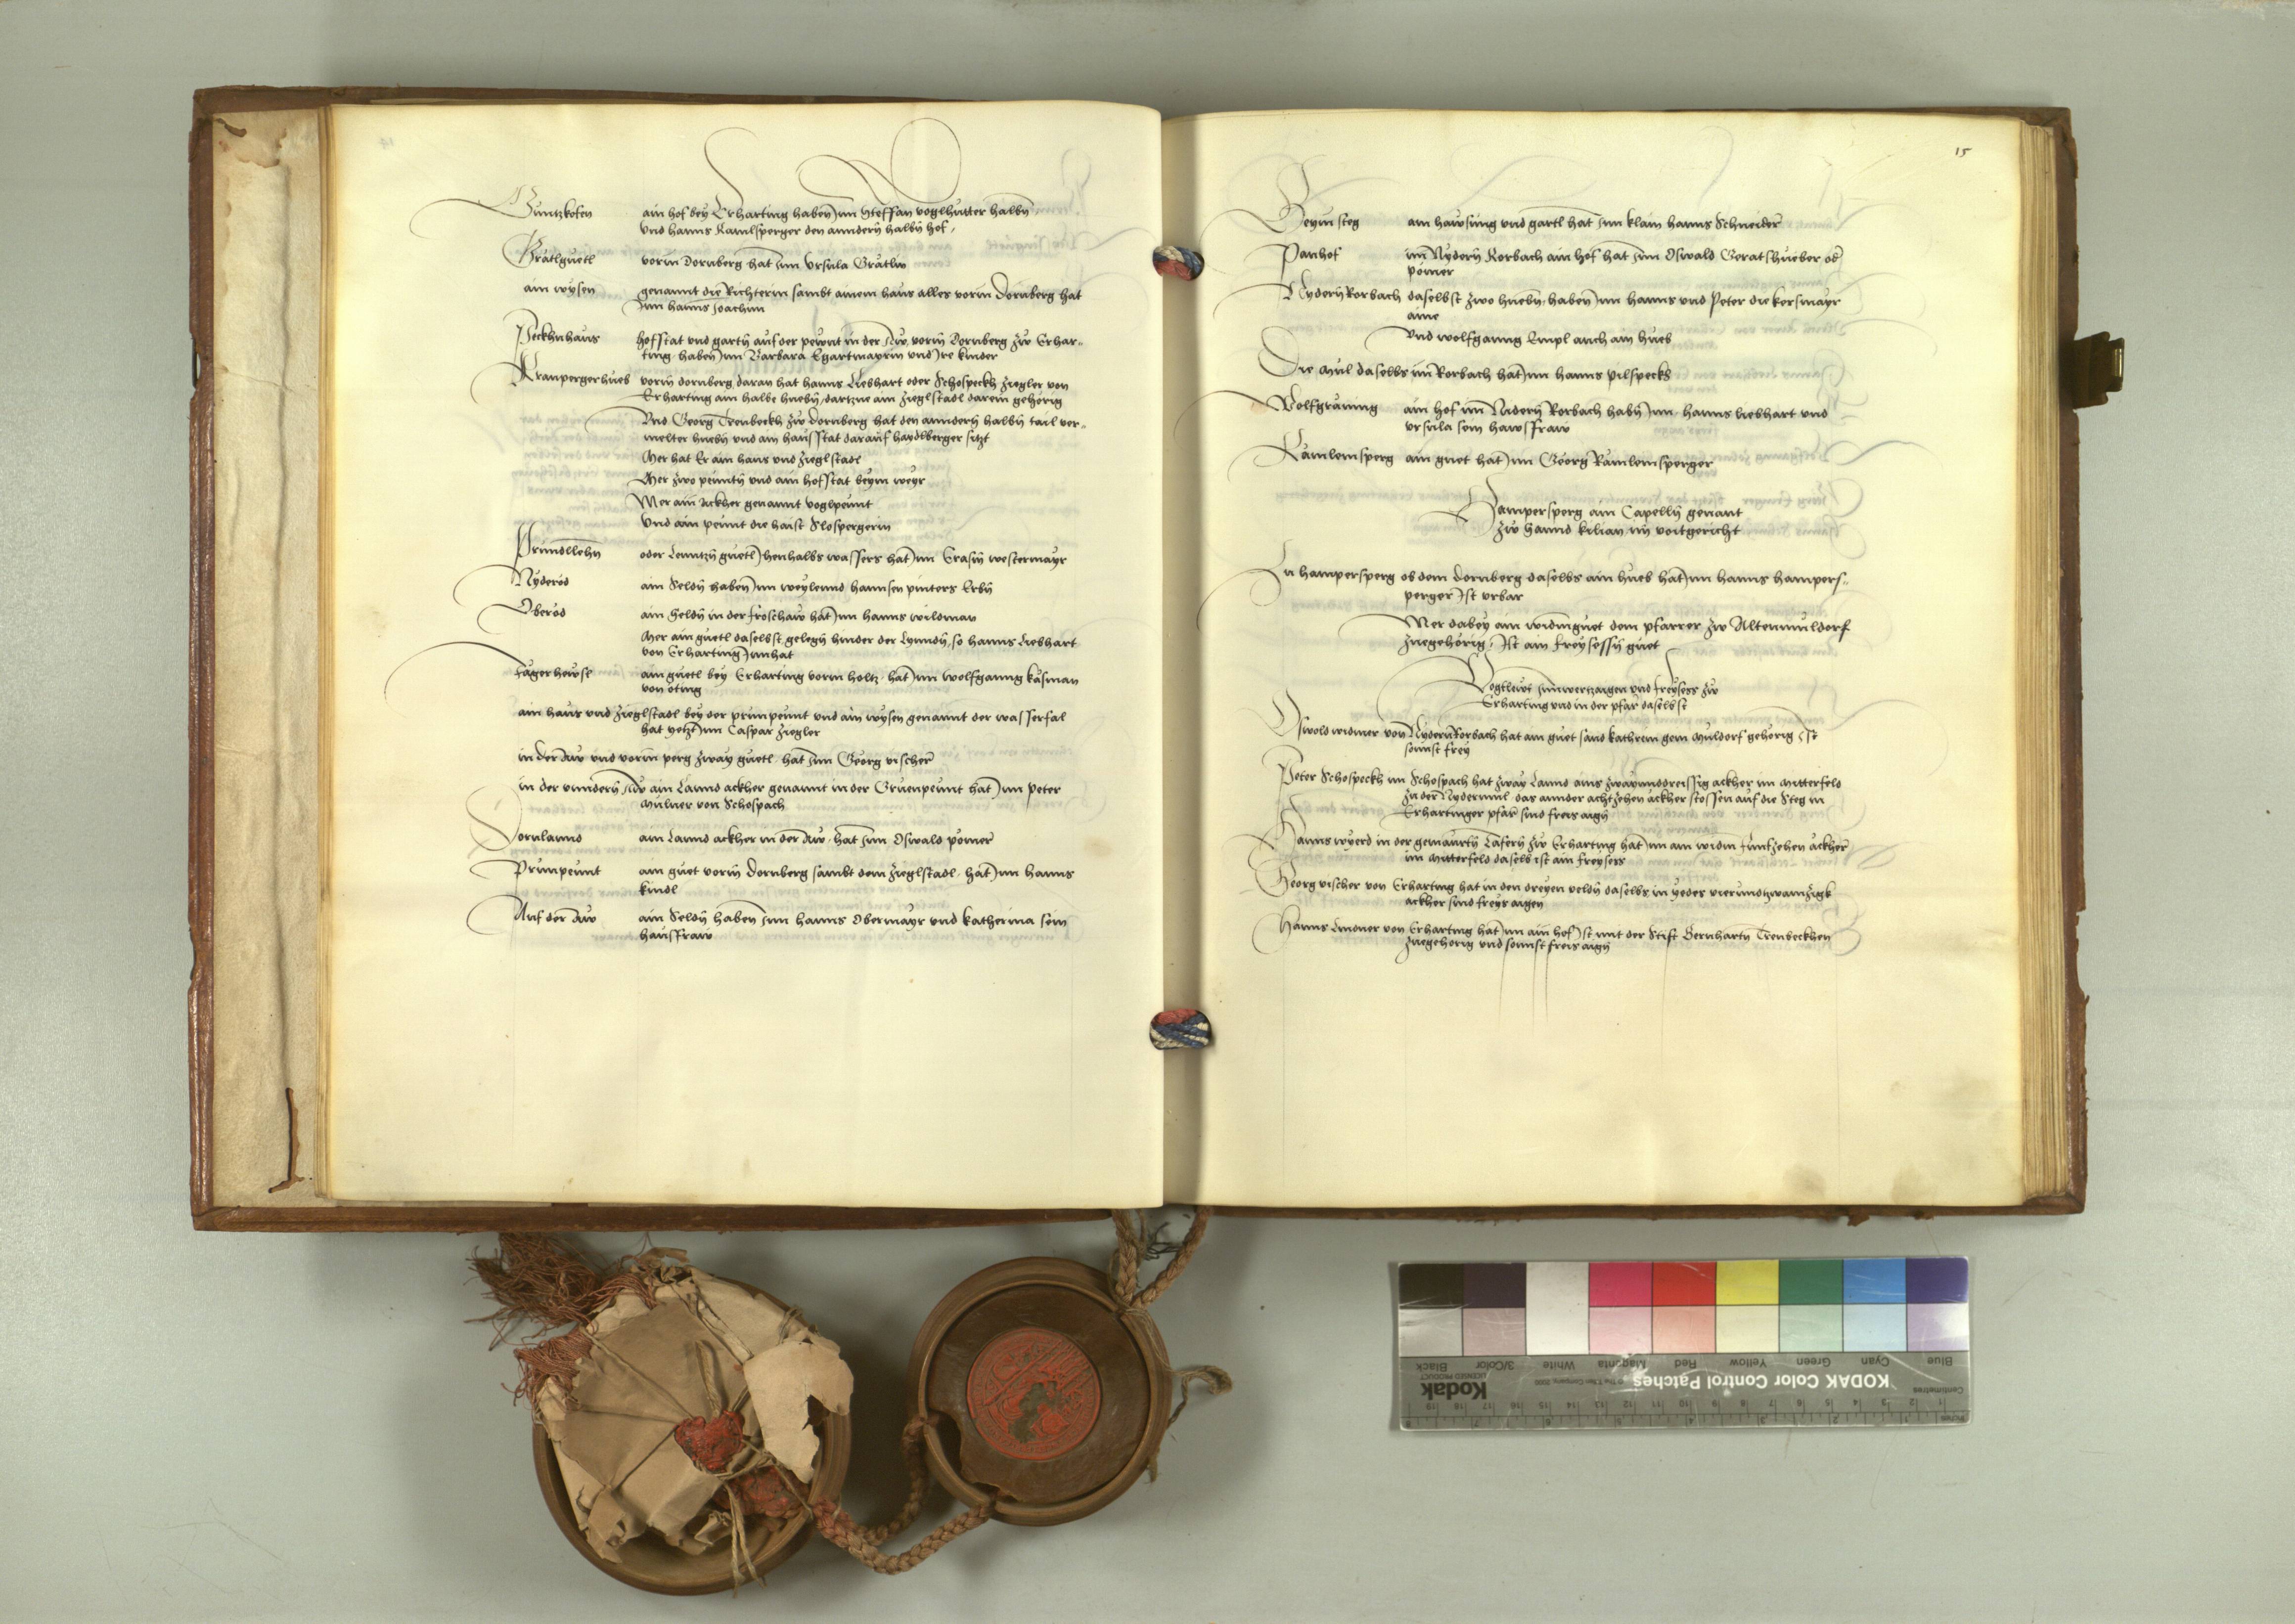 Guntzkofen ain hof bey Erharting haben Inn Steffan voglhutter halbn
vnd hanns Ramlsperger den anndern halbn hof,
Grätlguetl vorm Dornberg hat Inn Vrsula Grätlin
ain wysen genannt die Richterin sambt ainem haus alles vorm Dornberg hat
Inn hanns Joachim
Peckhnhaus hofstat vnd gartn auf der pewnt in der Aw vorm Dornberg zw Erhar-
ting haben Inn Barbara Egartmayrin vnd Ire kinder
Kranpergerhueb vorm dornberg daran hat hanns Liebhart oder Schospeckh ziegler von
Erharting ain halbe huebn dartzue ain zieglstadl darein gehörig
Vnd Georg Trenbeckh zw Dornberg hat den anndern halbn tail ver-
melter huebn vnd ain hausstat darauf haydlberger sitzt
Mer hat Er ain haus vnd zieglstadl
Mer zwo peuntn vnd ain hofstat beym weyr
Mer ain Ackher genannt voglpeunt
Vnd ain peunt die haist Slospergerin
Prundllehn oder guetl Ihenhalbs wassers hat Inn Erasm westermayr
Nyderöd ain Seldn haben Inn weylennd hannsen pinters Erbn
Oberöd ain Seldn in der froschaw hat Inn hanns wildman
Mer ain guetl daselbst gelegn hinder der Lynndn, so hanns Liebhart
von Erharting Innhat
Jägerhewsl ain guetl bey Erharting vorm holtz hat Inn wolfganng käsman
von öting
ain haus vnd zieglstadl bey der prunpeunt vnd ain wysen genannt der wasserfal
hat yetzt Inn Caspar ziegler
in der Aw vnd vorm perg zway guetl hat Inn Georg vischer
in der vnndern Aw ain Lannd ackher genannt in der Gruenpeunt hat Inn peter
Mulner von Schospach
Dornlannd ain Lannd ackher in der Aw hat Inn Oswald pomer
Prunpeunt ain guet vorm Dornberg sambt dem zieglstadl hat Inn hanns
kindl
Auf der Aw ain Seldn haben Inn hanns Obermayr vnd katherina sein
hausfraw
15
Beym steg ain hawsung vnd gartl hat Inn klain hanns Schneider
Panhof im Nydern Rorbach ain hof hat Inn Oswald Geratshueber od
pomer
Nydern Rorbach daselbst zwo huebn haben Inn hanns vnd Peter die kersmayr
aine
Vnd wolfganng Empl auch ain hueb
Die Mul daselbs im Rorbach hat Inn hanns pilspeckh
Wolfgräning ain hof im Nidern Rorbach habn Inn hanns Liebhart vnd
vrsula sein hawsfraw
Rämlemsperg ain guet hat Inn Georg Rämlemsperger
Hampersperg ain Capelln genant
zw sannd kilian im voitgericht
Zu hampersperg ob dem Dornberg daselbs ain hueb hat Inn hanns hampers-
perger Ist vrbar
Mer dabey ain widmguet dem pfarrer zw Altenmuldorf
zuegehörig, Ist ain freysessn guet
Vogtlewt Innwertzaigen vnd freysess zw
Erharting vnd in der pfar daselbst
Oswold widmer von Nydern Rorbach hat ain guet sand kathrein gem Muldorf gehörig Ist
sounst frey
Peter Schospeckh im Schospach hat zway Lannd ains zwayunddreissig ackher im Mitterfeld
zu der Nydermul das annder achtzehen ackher stossen auf die Steg in
Erhartinger pfar sind freis aign
Hanns wyerd in der gemaurtn Tafern zw Erharting hat Inn ain widm funfzehen äckher
im Mitterfeld daselb ist ain freysess
Georg vischer von Erharting hat in den dreyen veldn daselbs in yedes vierundtzwaintzigk
ackher sind freys aigen
Hanns Lindner von Erharting hat Inn ain hof Ist mit der Stift Bernhartn Trenbeckhen
zuegehörig vnd sounst freis aign
KODAK Color Control Patches
Kodak
LICENSED PRODUCT
Black 3/Color White Magenta Red Yellow Green Cyan Blue
Centimetres
Inches